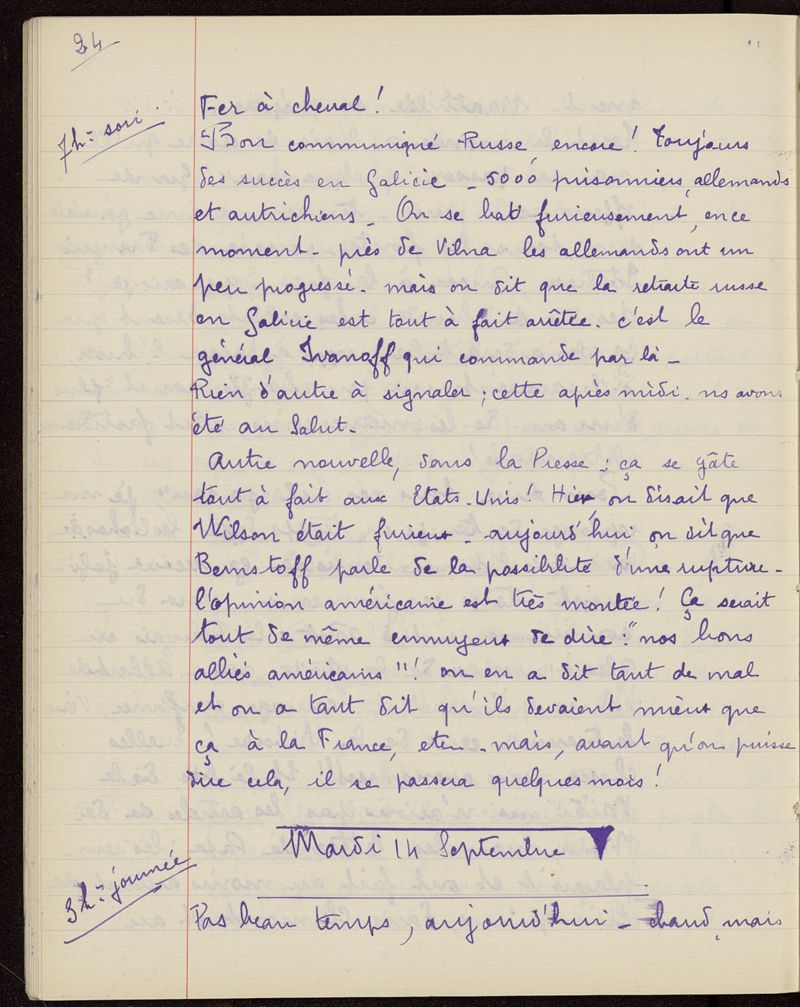 24
Fer à cheval !
7h= soir.
Bon communiqué Russe encore ! Toujours
des succès en Galicie - 5000 prisonniers allemands
et autrichiens - On se bat furieusement, en ce
moment - près de Vilna les allemands ont un
peu progressé - mais on dit que la retraite russe
en Galicie est tout à fait arrêtée. c'est le
général Ivanoff qui commande par là -
Rien d'autre à signaler ; cette après midi - ns avons
été au Salut -
Autre nouvelle, dans la Presse ; ça se gâte
tout à fait aux Etats-Unis ! Hier, on disait que
Wilson était furieux - aujourd'hui on dit que
Bernstoff parle de la possibilité d'une rupture -
l'opinion américaine est très montée ! Ça serait
tout de même ennuyeux de dire : "nos bons
alliés américains" ! on en a dit tant de mal
et on a tant dit qu'ils devaient mieux que
ça à la France, etc - mais, avant qu'on puisse
dire cela, il se passera quelques mois !
Mardi 14 Septembre
3h= journée
Pas beau temps, aujourd'hui - chaud, mais